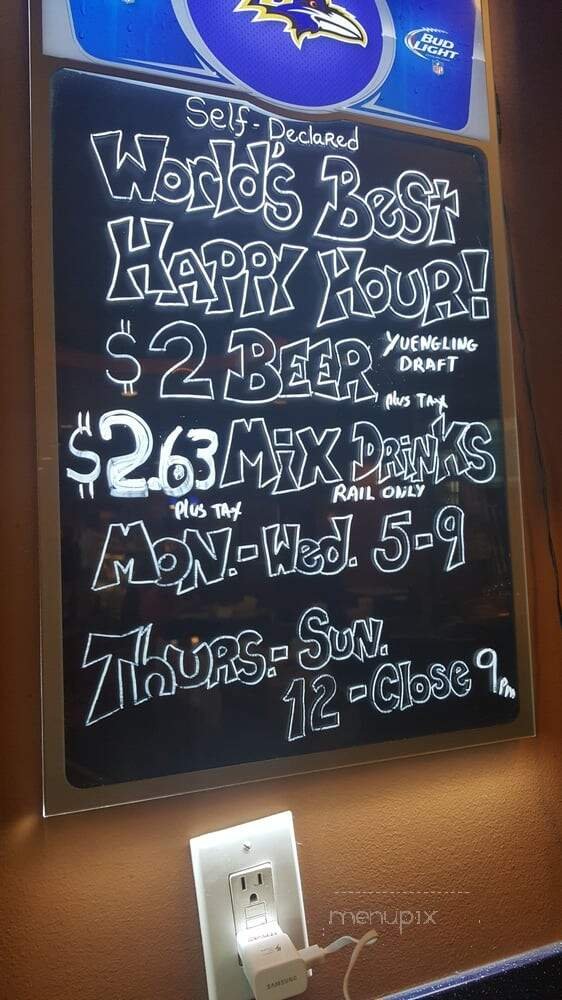 BUD
LIGHT
NFL
Self-Declared
World's Best
Happy Hour!
$2 Beer Yuengling
Draft
plus tax
$2.63 Mix Drinks
plus tax Rail only
Mon.-Wed. 5-9
Thurs.-Sun.
12-Close 9pm
menupix
SAMSUNG